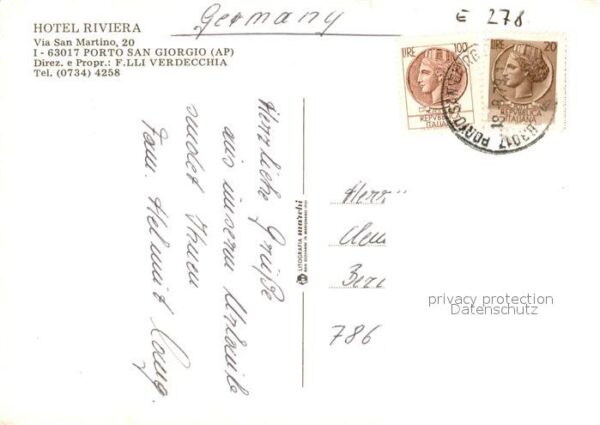 HOTEL RIVIERA
Via San Martino, 20
I - 63017 PORTO SAN GIORGIO (AP)
Direz. e Propr.: F.LLI VERDECCHIA
Tel. (0734) 4258
Germany
E 278
LIRE 100
REPVBBLICA
ITALIANA
LIRE 20
REPVBBLICA
ITALIANA
63017 PORTO S.
Herzliche Grüße
aus unserm Urlaub
sendet Ihnen
Fam. Helmut
LITOGRAFIA marchi
Herr
786
privacy protection
Datenschutz